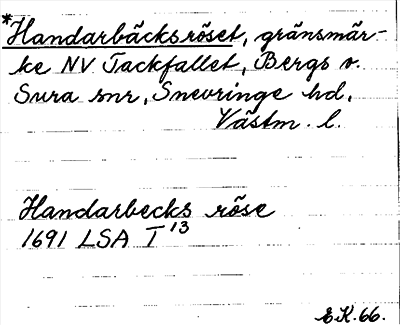 *Handarbäcksröset, gränsmär-
ke NV Tackfallet, Bergs o.
Sura snr, Snevringe hd,
Västm. l.
Handarbecks röse
1691 LSA T 13
E.K. 66.